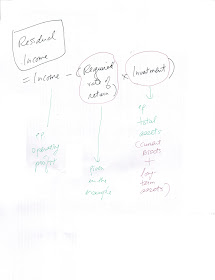 Residual
Income
= Income - (Required rate of return × Investment)
eg
operating
profit
given
in the
example
eg
total
assets
(current
assets
+
long
term
assets)